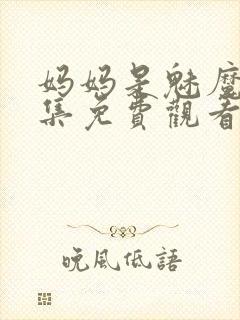 妈妈是魅魔
集免費觀看
晚風低語